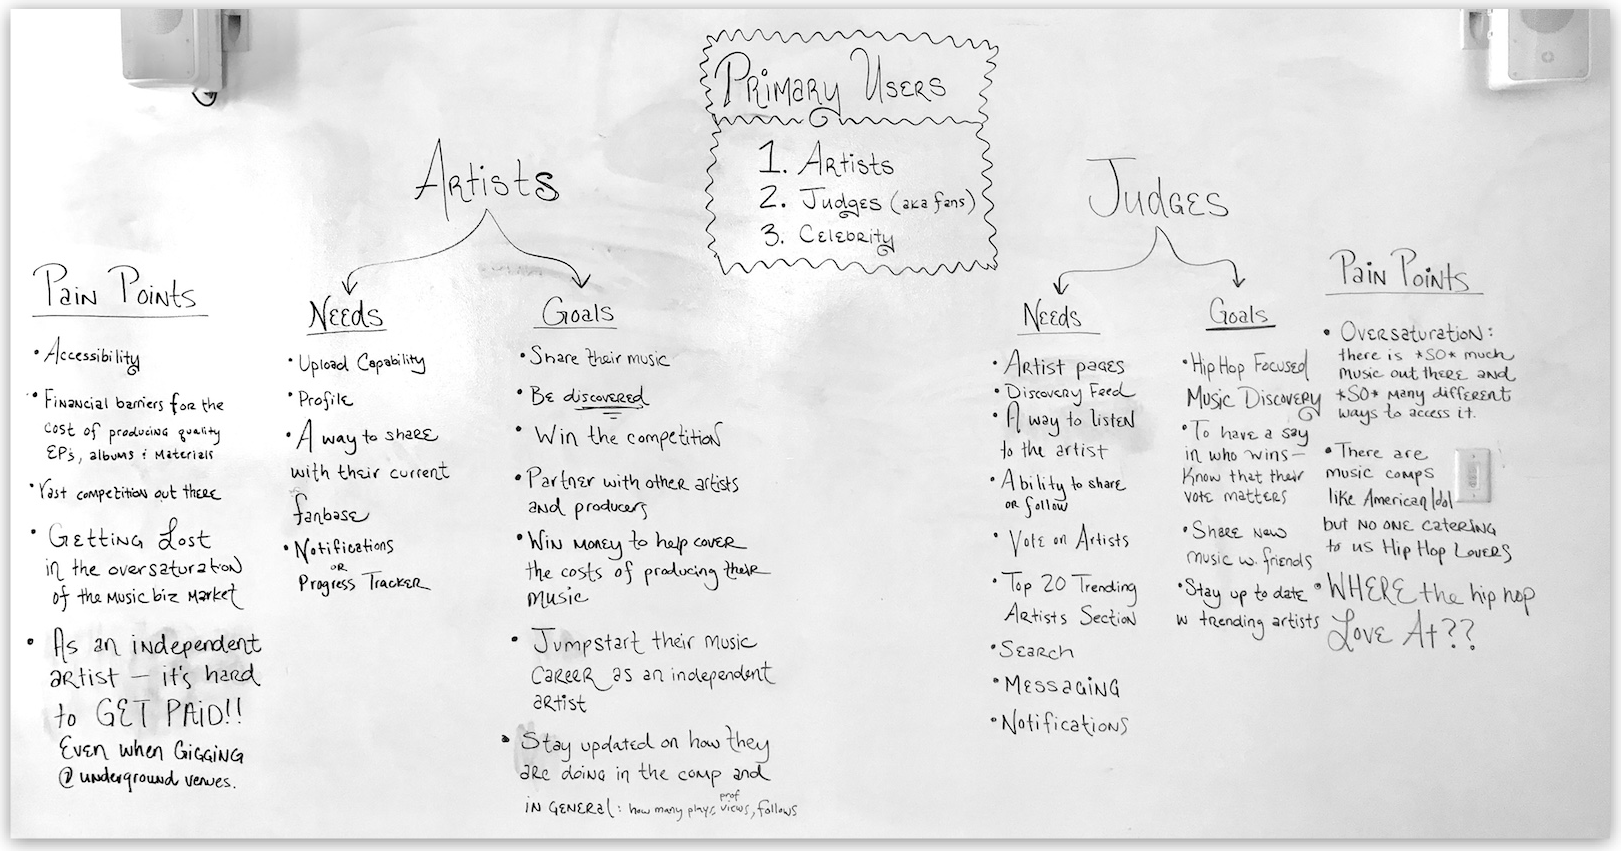 Primary Users
1. Artists
2. Judges (aka fans)
3. Celebrity
Artists
Pain Points
• Accessibility
• Financial barriers for the
cost of producing quality
EP's, albums & Materials
• Vast competition out there
• Getting Lost
in the oversaturation
of the Music biz Market
• As an independent
artist — it's hard
to GET PAID!!
Even when Gigging
@ underground venues.
Needs
• Upload Capability
• Profile
• A way to share
with their current
fanbase
• Notifications
OR
Progress Tracker
Goals
• Share their music
• Be discovered
• Win the competition
• Partner with other artists
and producers
• Win money to help cover
the costs of producing their
music
• Jumpstart their music
career as an independent
artist
• Stay updated on how they
are doing in the comp and
in general: how many plays, prof views, follows
Judges
Needs
• Artist pages
• Discovery Feed
• A way to listen
to the artist
• Ability to share
or follow
• Vote on Artists
• Top 20 Trending
Artists Section
• Search
• Messaging
• Notifications
Goals
• Hip Hop Focused
Music Discovery
• To have a say
in who wins —
Know that their
vote matters
• Share new
music w. friends
• Stay up to date
w trending artists
Pain Points
• Oversaturation:
there is *SO* much
music out there and
*SO* many different
ways to access it.
• There are
music comps
like American Idol
but no one catering
to us Hip Hop Lovers
• WHERE the hip hop
Love At??